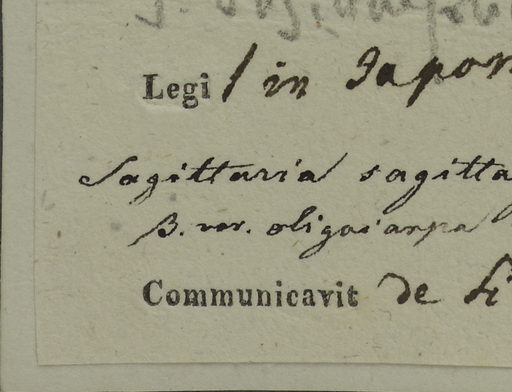 Legi / in Japon
Sagittaria sagitta
B. var. oligocarpa
Communicavit de Si